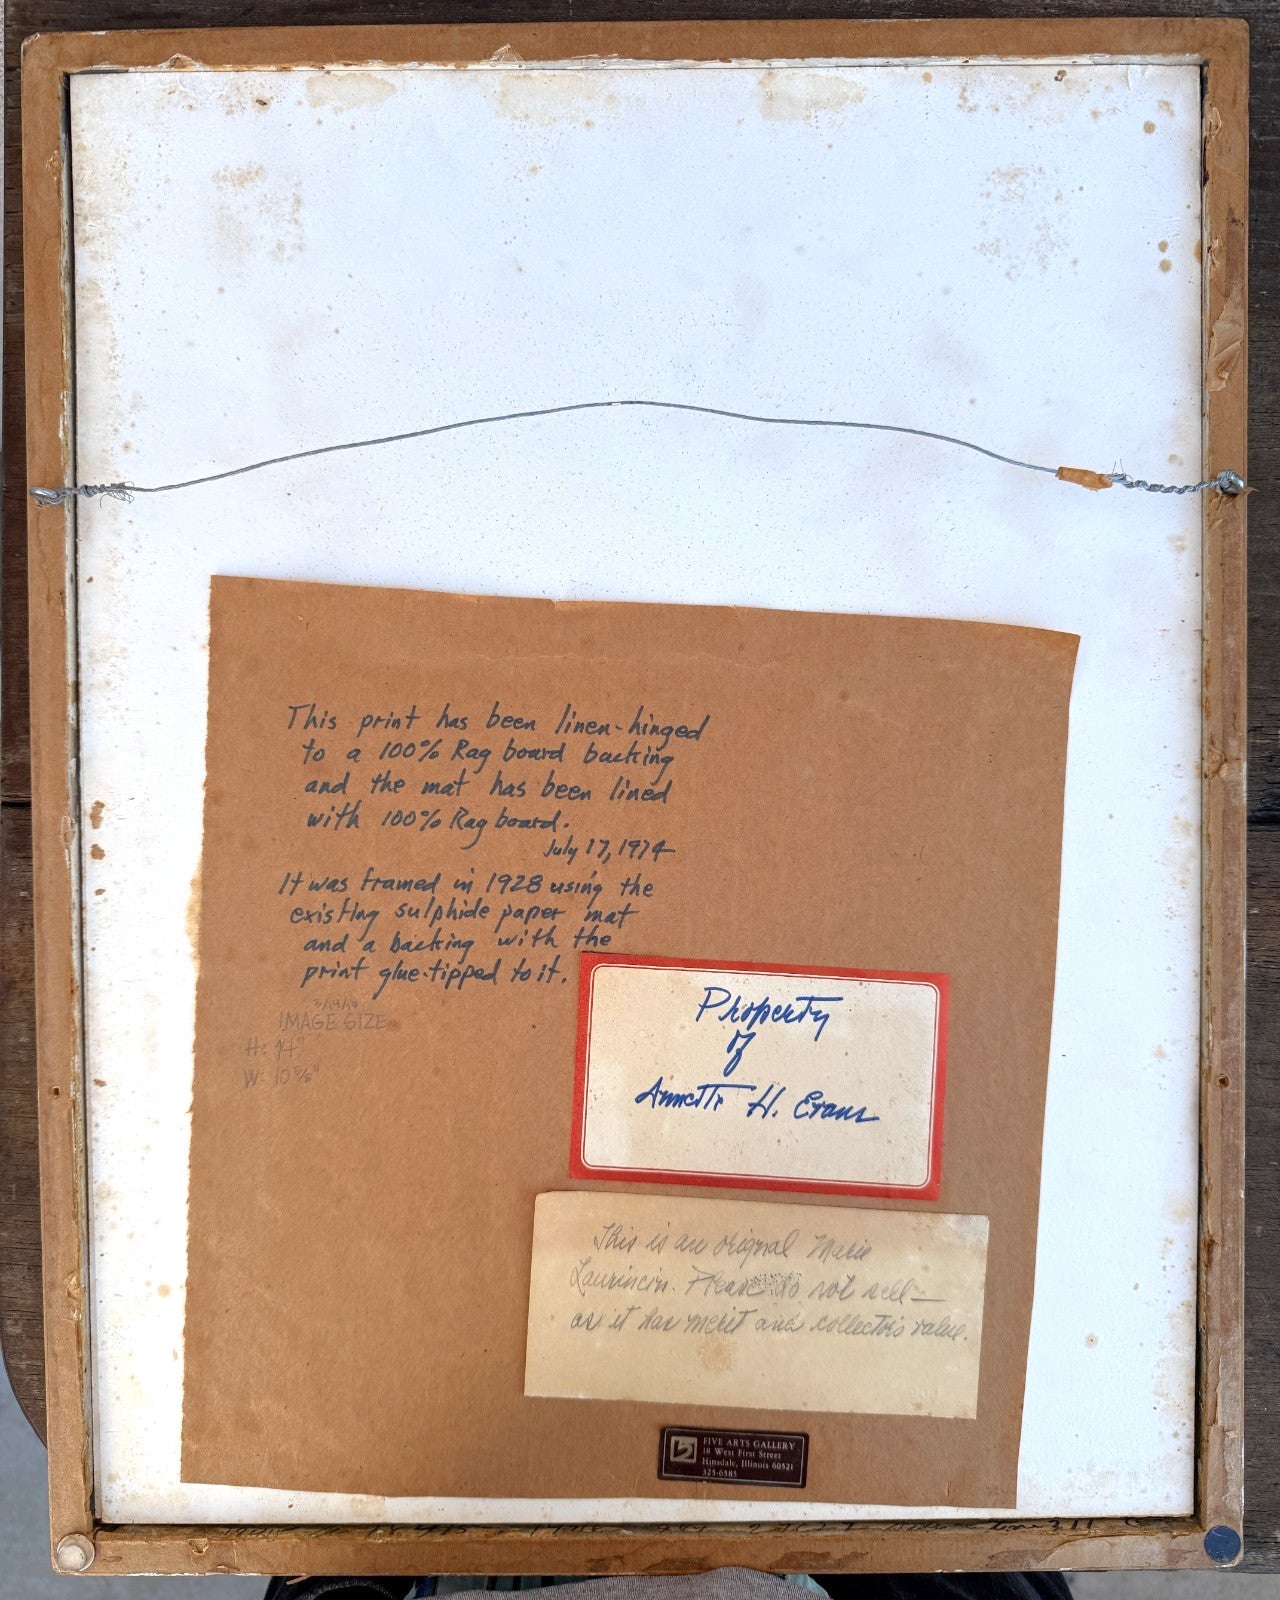 This print has been linen-hinged
to a 100% Rag board backing
and the mat has been lined
with 100% Rag board.
July 17, 1974
It was framed in 1928 using the
existing sulphide paper mat
and a backing with the
print glue-tipped to it.
IMAGE SIZE
H: 14"
W: 10 5/8"
Property
of
Annette H. Evans
This is an original Marie
Laurincin. Please do not sell—
as it has merit and collectors value.
FIVE ARTS GALLERY
18 West First Street
Hinsdale, Illinois 60521
325-6585